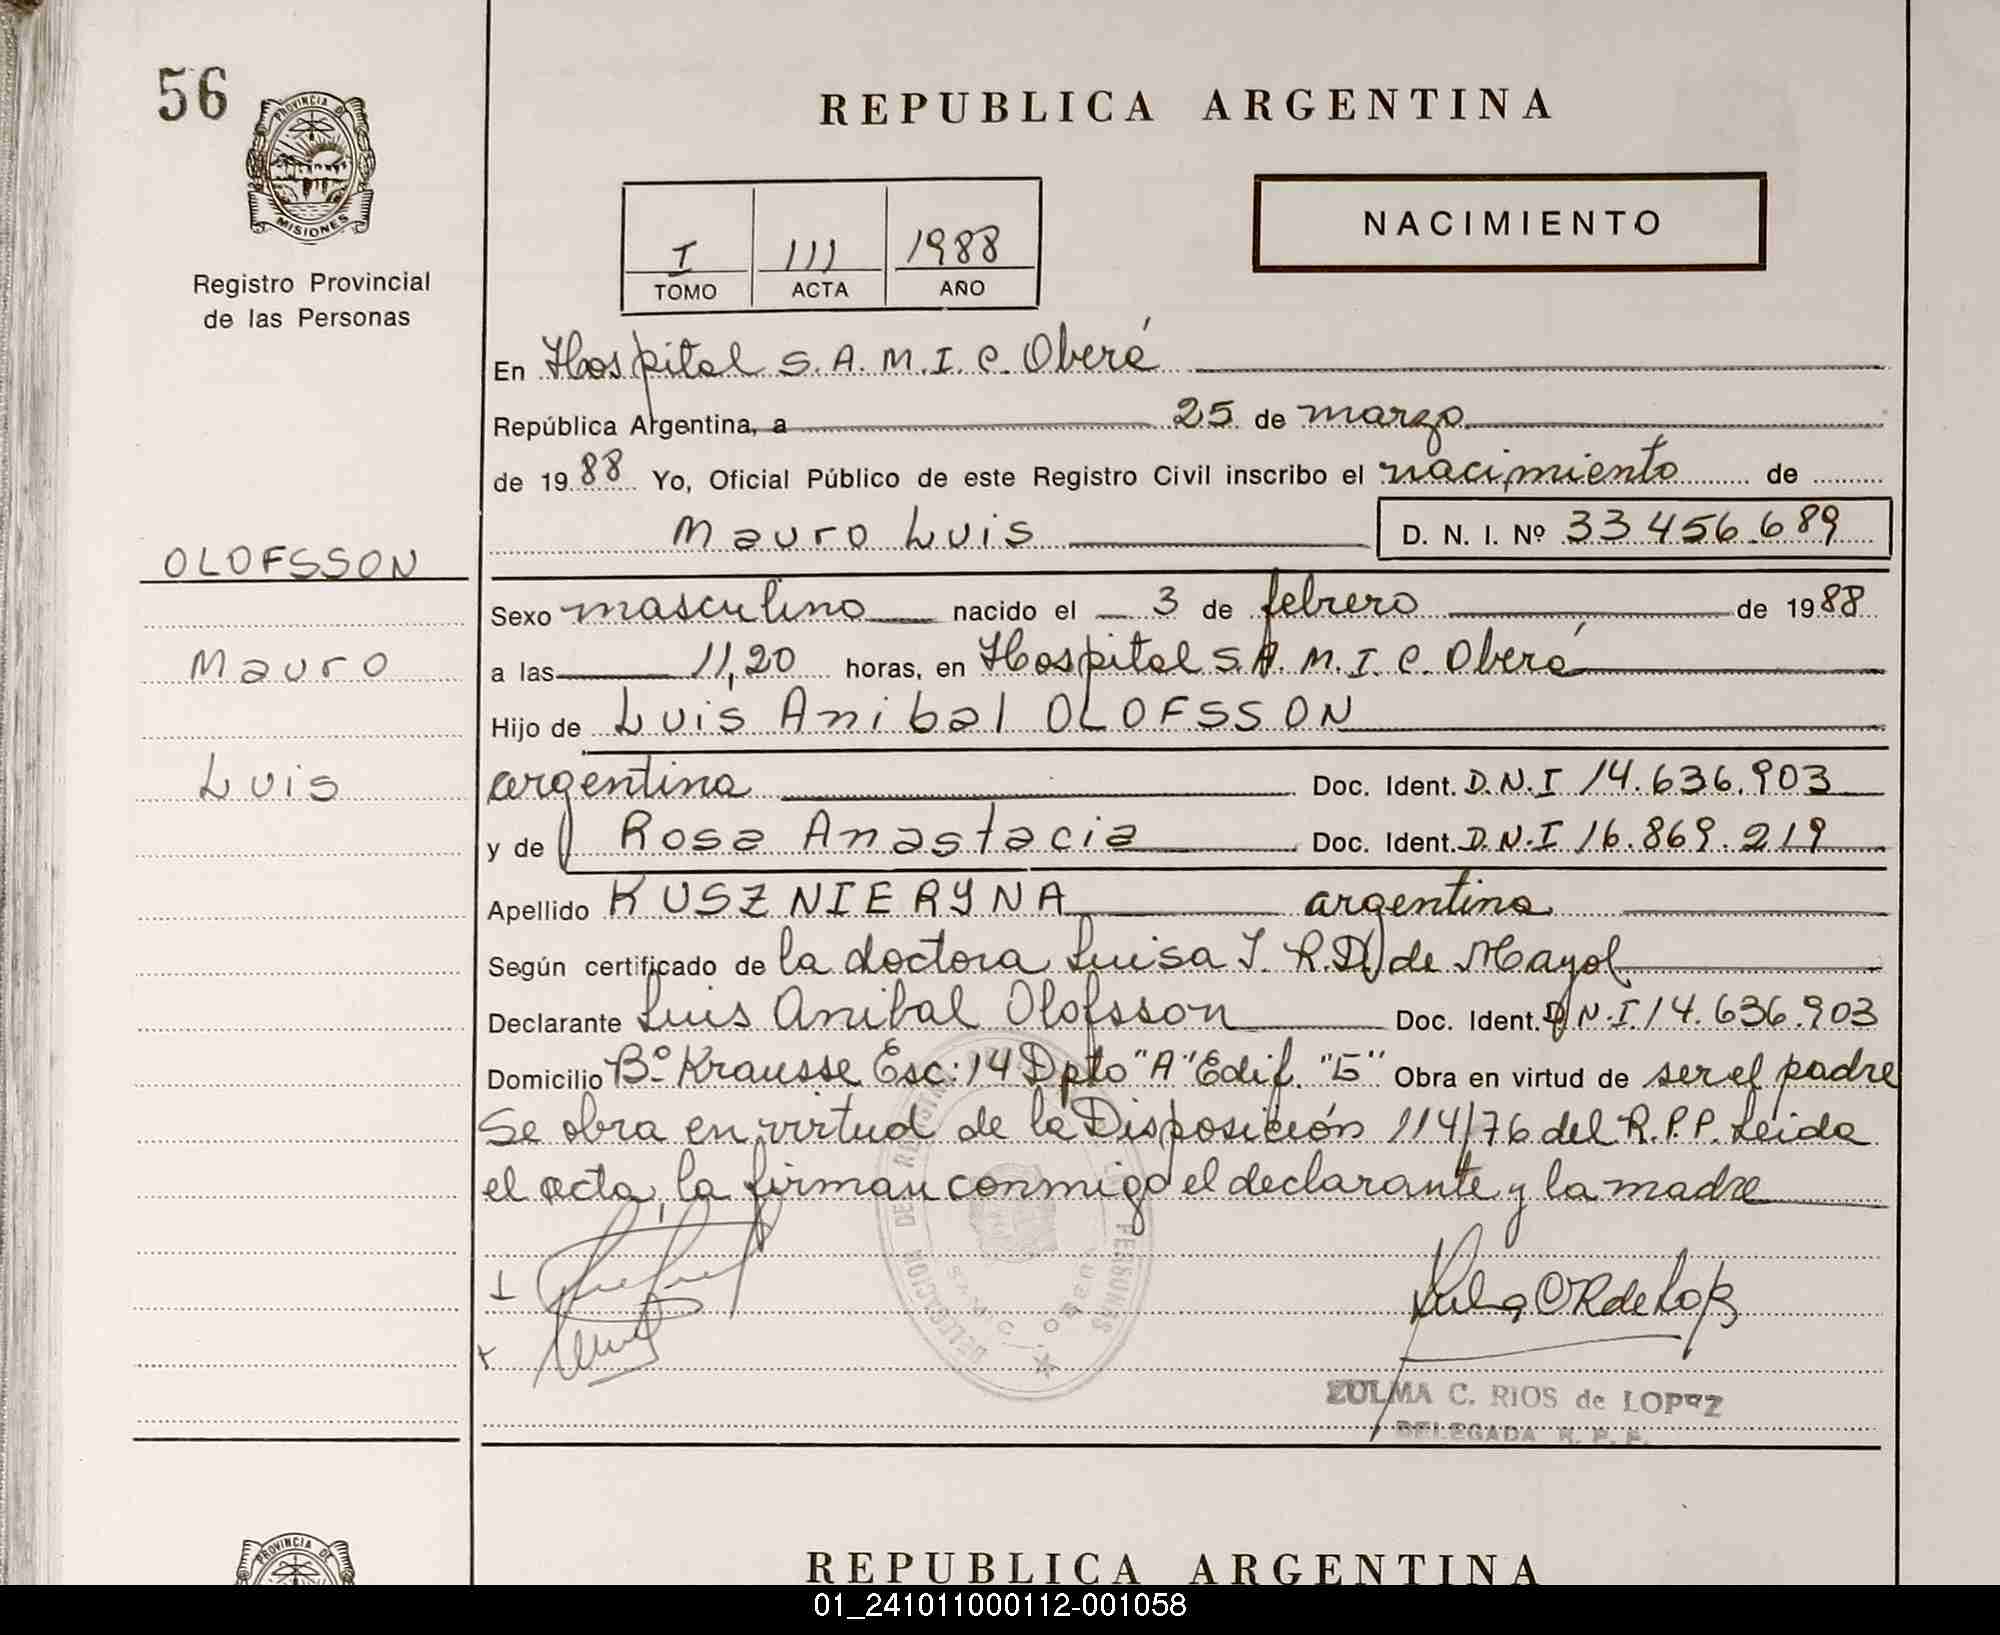 56
PROVINCIA DE
MISIONES
Registro Provincial
de las Personas
REPUBLICA ARGENTINA
NACIMIENTO
I 111 1988
TOMO ACTA AÑO
En Hospital S.A.M.I.C. Oberá
República Argentina, a 25 de marzo
de 1988 Yo, Oficial Público de este Registro Civil inscribo el nacimiento de
Mauro Luis D. N. I. Nº 33456689
OLOFSSON
Mauro
Luis
Sexo masculino nacido el 3 de febrero de 1988
a las 11,20 horas, en Hospital S.A.M.I.C. Oberá
Hijo de Luis Anibal OLOFSSON
argentina Doc. Ident. D.N.I 14.636.903
y de Rosa Anastacia Doc. Ident. D.N.I 16.869.219
Apellido KUSZNIERYNA argentina
Según certificado de la doctora Luisa I. R.D. de Mayol
Declarante Luis Anibal Olofsson Doc. Ident. D.N.I. 14.636.903
Domicilio Bº Krausse Esc: 14 Dpto "A" Edif. "5" Obra en virtud de ser el padre
Se obra en virtud de la Disposición 114/76 del R.P.P. Leida
el acta, la firman conmigo el declarante y la madre
DELEGACION DEL REGISTRO PERSONAS
ZULMA C. RIOS de LOPEZ
DELEGADA R. P. P.
PROVINCIA DE
REPUBLICA ARGENTINA
01_241011000112-001058